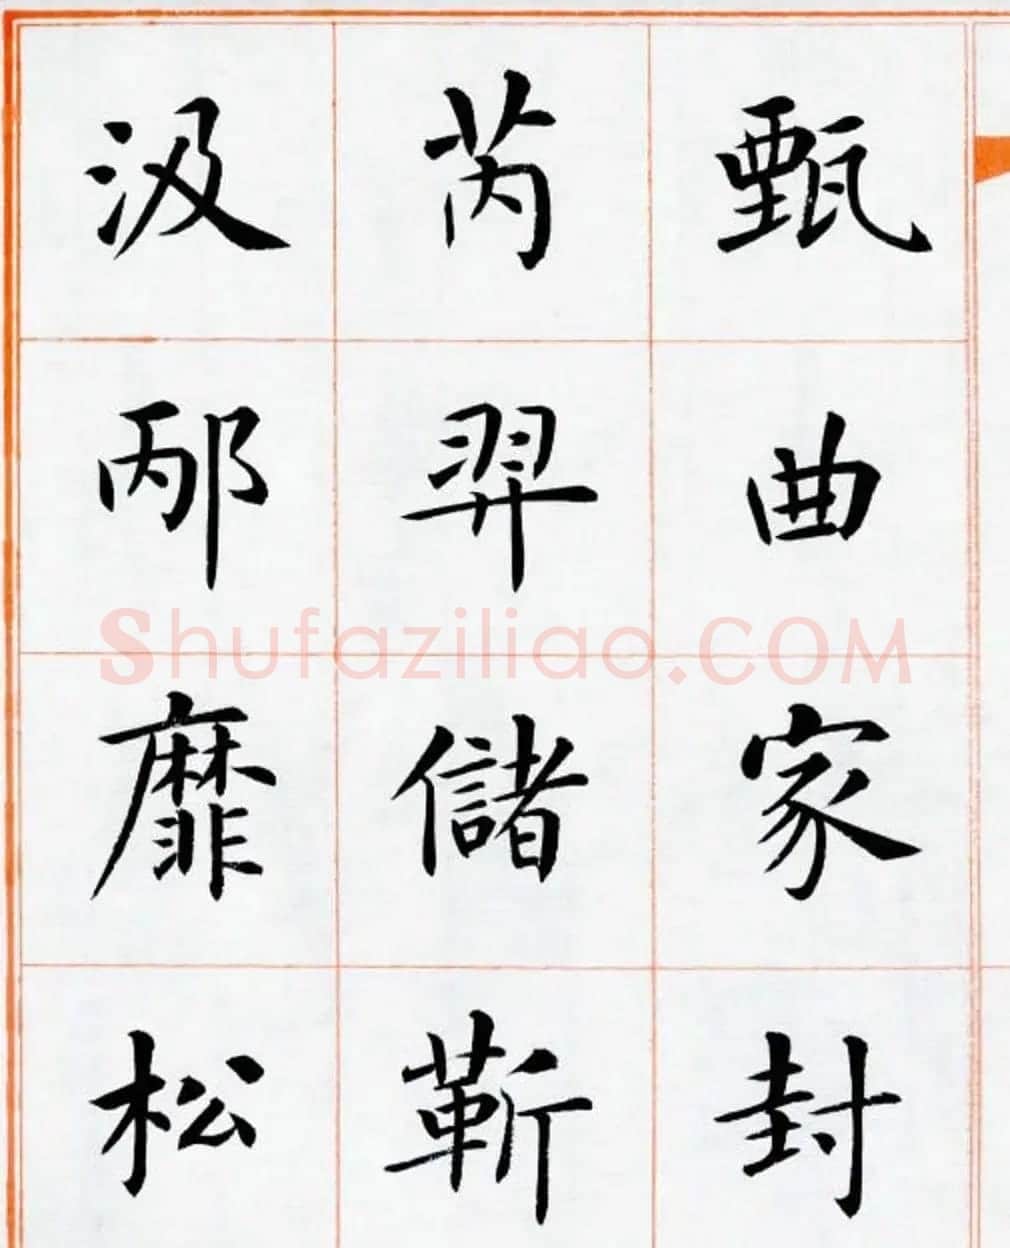 甄曲家封
芮羿儲靳
汲邴靡松
Shufaziliao.COM